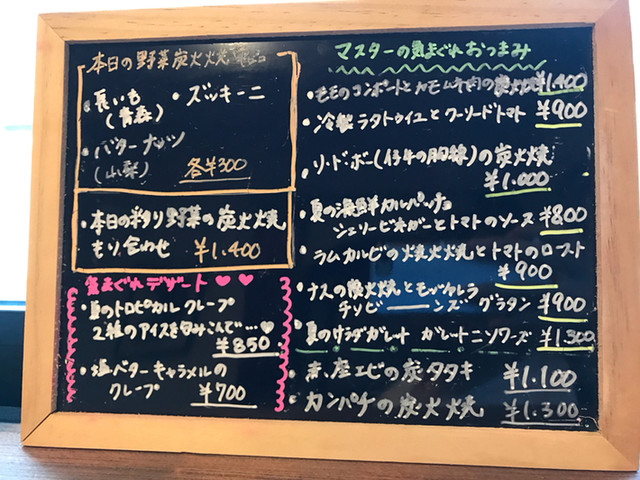 本日の野菜炭火焼
・長いも
(青森)
・ズッキーニ
・バターナッツ
(山梨)
各¥300
・本日の彩り野菜の炭火焼
もり合わせ ¥1.400
気まぐれデザート
・夏のトロピカルクレープ
2種のアイスを包みこんで…
¥850
・塩バターキャラメルの
クレープ ¥700
マスターの気まぐれおつまみ
・モモのコンポートと ¥1.400
・冷製ラタトゥイユとクーソードトマト ¥900
・リ・ド・ボー(仔牛の胸線)の炭火焼
¥1.000
・夏の海鮮カルパッチョ
シェリービネガーとトマトのソース ¥800
・ラムカルビの炭火焼とトマトのロースト
¥900
・ナスの炭火焼とモッツァレラ
チリビーンズグラタン ¥900
・夏のサラダガレット ガレットニソワーズ ¥1.300
・赤座エビの炭タタキ ¥1.100
・カンパチの炭火焼 ¥1.300